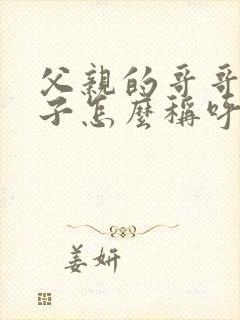 父親的哥哥
子怎麼稱呼
姜妍